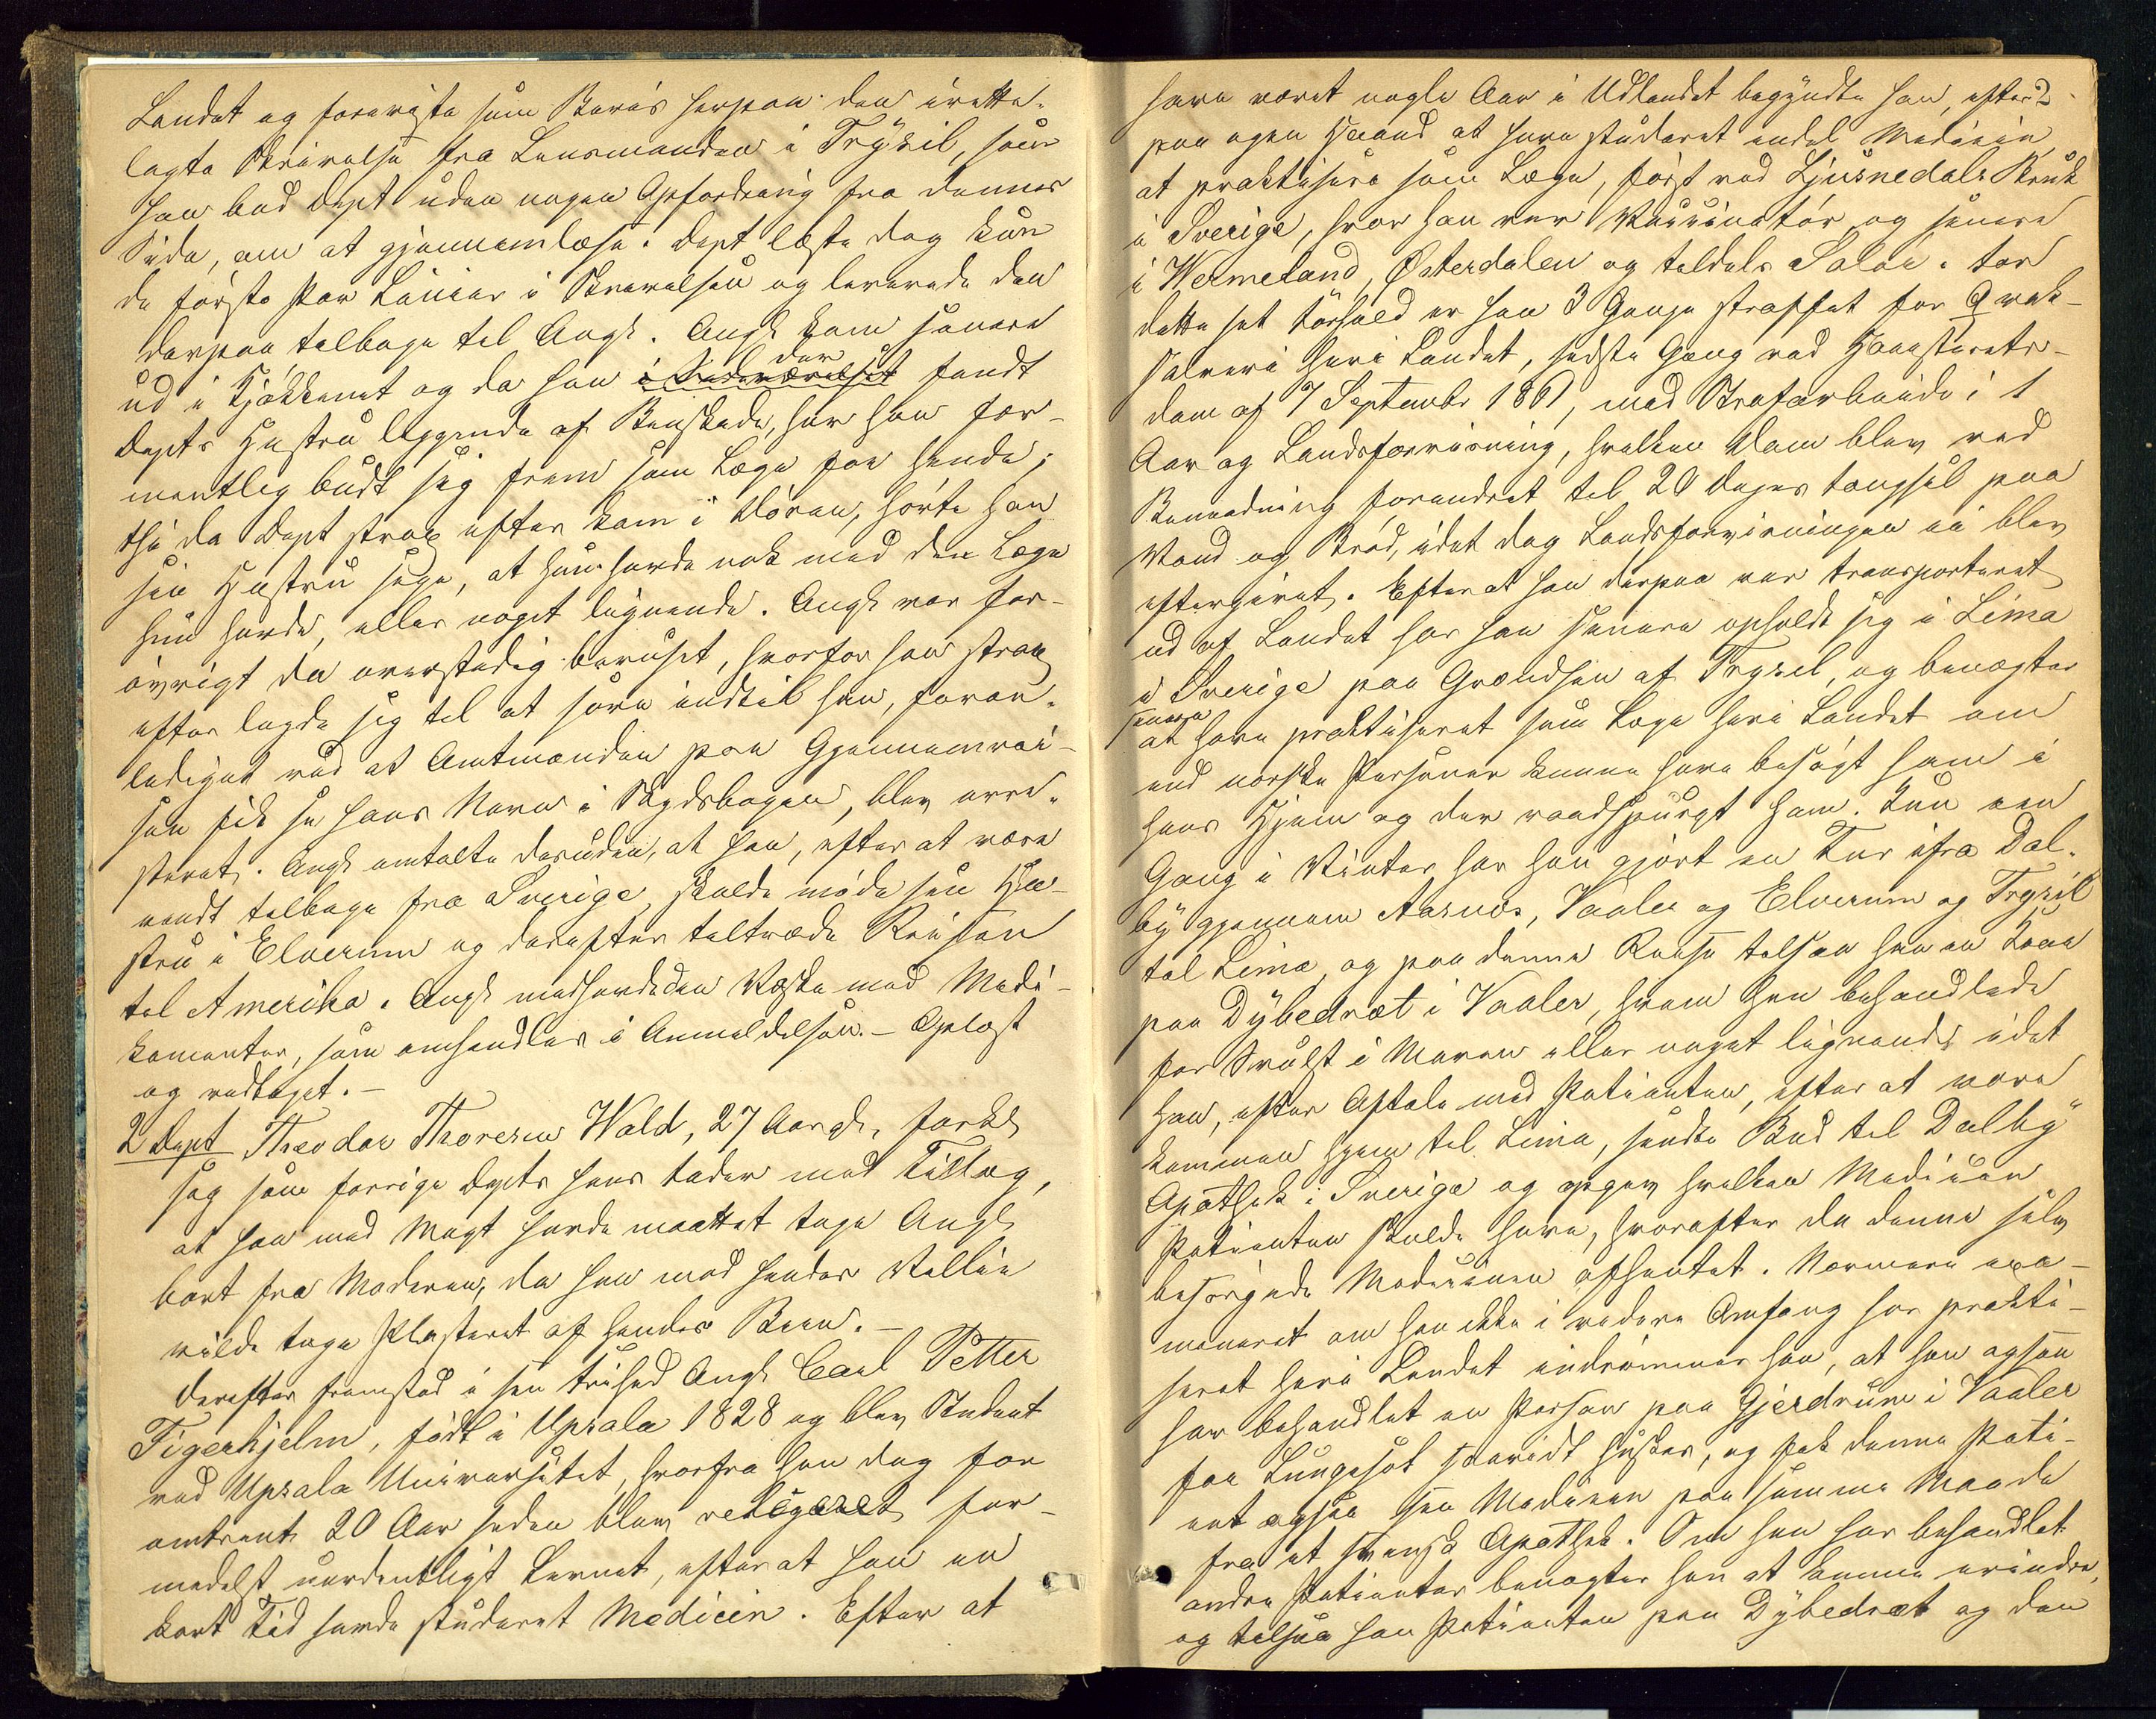 Landet og foreviste som Bevis herpaa den irette-
lagte Skrivelse fra Lensmanden i Trysil, som
han bad Dept uden nogen Opfordring fra dennes
Side, om at gjennemlæse. Dept læste dog kun
de første Par Linier i Skrivelsen og leverede den
derpaa tilbage til Angk. Angk kom senere
ud i Kjøkkenet og da han i Sideværelset der fandt
Depts Hustru liggende af Benskade, har han for-
mentlig budt sig frem som Læge for hende;
thi da Dept strax efter kom i Døren, hørte han
sin Hustru sige, at hun havde nok med den Læge
hun havde, eller noget lignende. Angk var for-
øvrigt da overstadig beruset, hvorfor han strax
efter lagde sig til at sove indtil han, foran-
lediget ved at Amtmanden paa Gjennemrei-
sen fik se hans Navn i Skydsbogen, blev arre-
steret. Angk omtalte desuden, at han, efter at være
vendt tilbage fra Sverige, skulde møde sin Hu-
stru i Elverum og derefter tiltræde Reisen
til Amerika. Angk medhavde den Væske med Medi-
kamenter, som omhandles i Anmeldelsen. – Oplæst
og vedtaget. –
2 Dept Theodor Thoresen Wold, 27 Aar gl. forkl
sig som forrige Depts hans Fader med Tillæg,
at han med Magt havde maattet tage Angk
bort fra Moderen, da han mod hendes Villie
vilde tage Plasteret af hendes Been. –
Derefter fremstod i sin Frihed Angk Carl Petter
Tigerhjelm, født i Upsala 1828 og blev Student
ved Upsala Universitet, hvorfra han dog for
omtrent 20 Aar siden blev relegeret for-
medelst uordentligt Levnet, efter at han en
kort Tid havde studeret Medicin. Efter at
have været nogle Aar i Udlandet begyndte han, efter 2
paa egen Haand at have studeret endel Medicin
at praktisere som Læge, først ved Ljusnedals Bruk
i Sverige, hvor han var Vaccinatør og senere
i Wermeland, Østerdalen og tildels Soløer. For
dette sit Forhold er han 3 Gange straffet for Qvak-
salveri her i Landet, sidste Gang ved Høiesterets-
dom af 7 Septembr 1861, med Strafarbeide i 1
Aar og Landsforvisning, hvilken Dom blev ved
Benaadning forandret til 20 Dages Fængsel paa
Vand og Brød, idet dog Landsforvisningen ei blev
eftergivet. Efter at han derpaa var transporteret
ud af Landet har han senere opholdt sig i Lima
i Sverige paa Grændsen af Trysil, og benægter
senere
at have praktiseret som Læge her i Landet om
end norske Personer kunne have besøgt ham i
hans Hjem og der raadspurgt ham. Kun een
Gang i Vinter har han gjort en Tur ifra Dal-
by gjennem Aasnes, Vaaler og Elverum og Trysil
til Lima, og paa denne Reise tilsaa han en Kone
paa Dybedræt i Vaaler, hvem han behandlede
for Svulst i Maven eller noget lignende idet
han, efter Aftale med Patienten, efter at være
kommen hjem til Lima, sendte Bud til Dalby
Apothek i Sverige og opgav hvilken Medicin
Patienten skulde have, hvorefter da denne selv
besørgede Medicinen afhentet. Nærmere exa-
mineret om han ikke i videre Omfang har prakti-
seret her i Landet indrømmer han, at han ogsaa
har behandlet en Person paa Gjerdrum i Vaaler
for Lungesot saavidt huskes, og fik denne Pati-
ent ogsaa sin Medicin paa samme Maade
fra et svensk Apothek. Om han har behandlet
andre Patienter benægter han at kunne erindre,
og tilsaa han Patienten paa Dybedræt og den